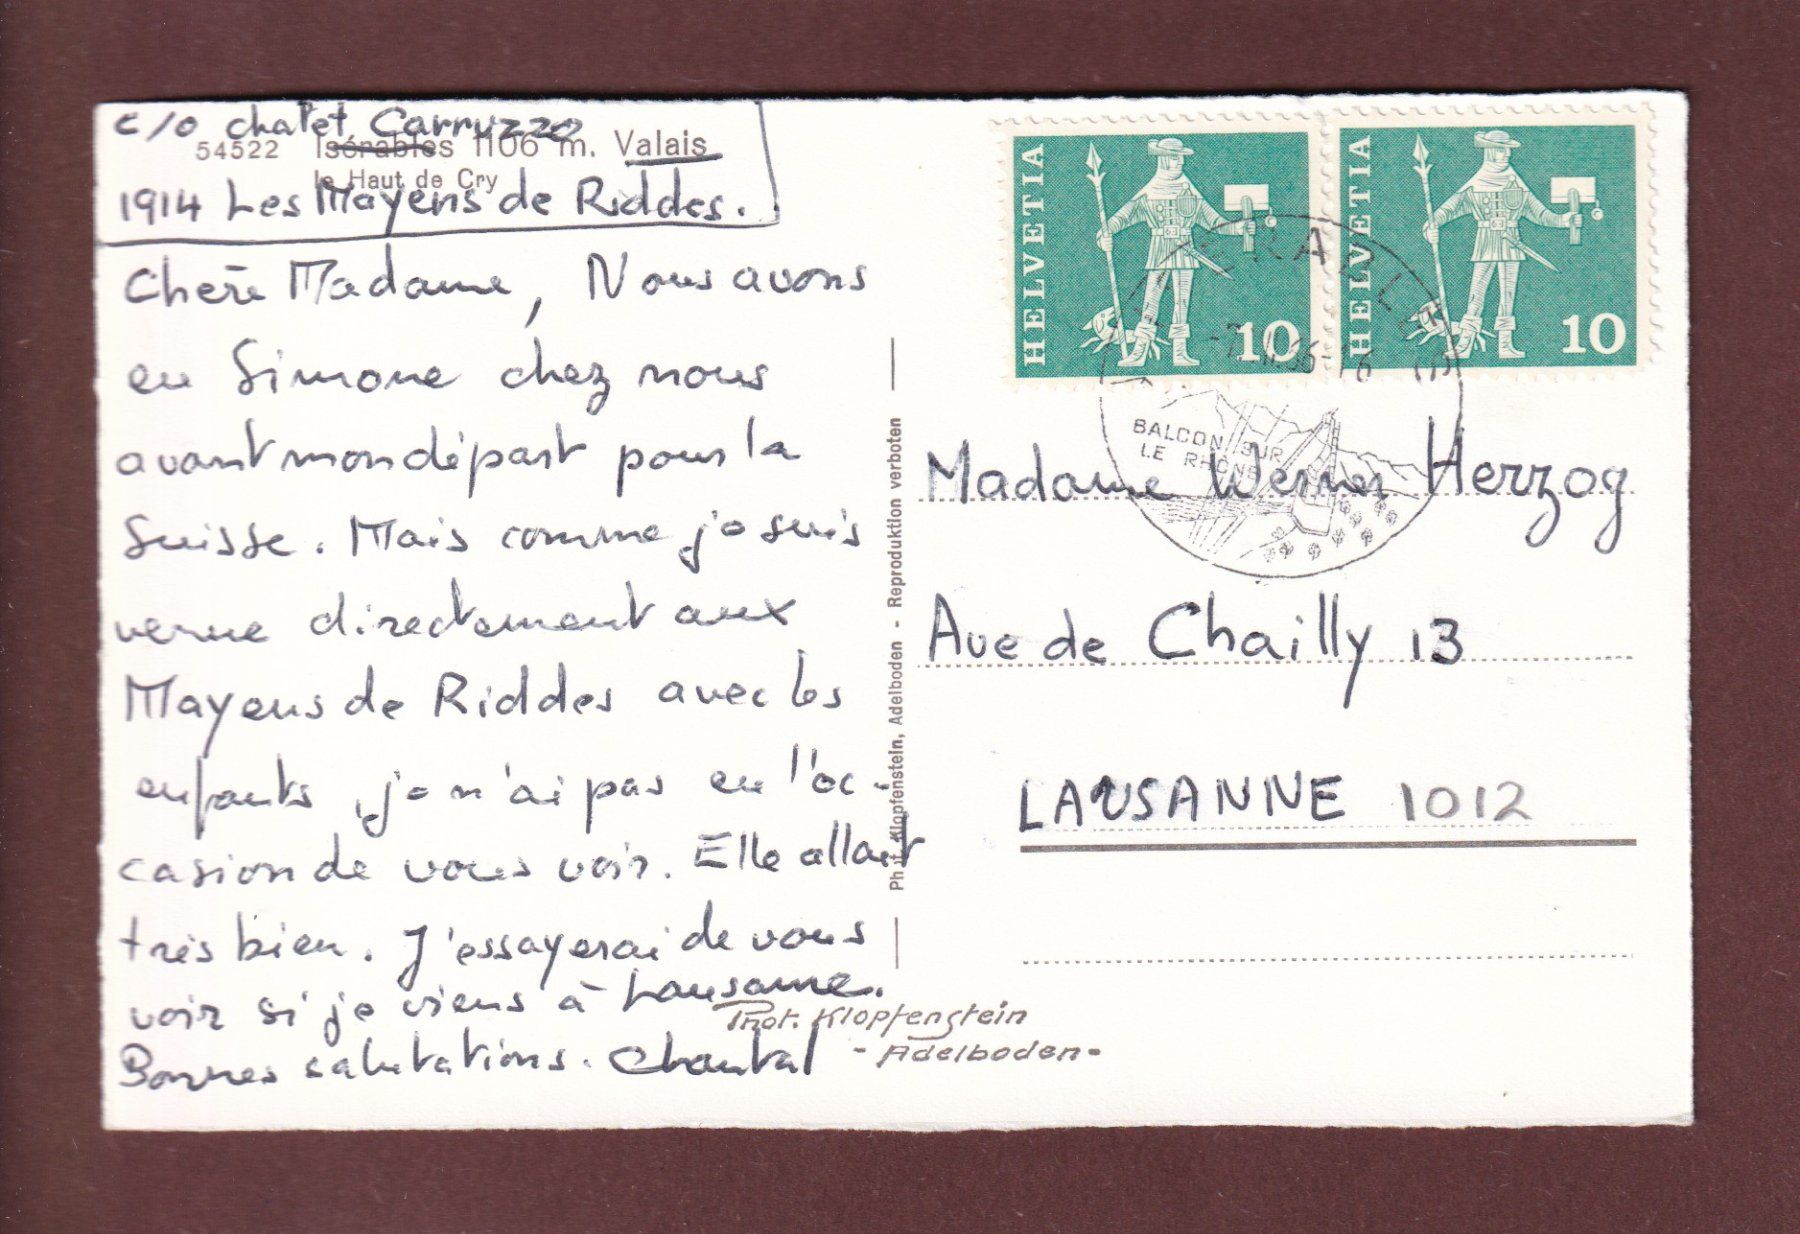 c/o chalet Carruzzo
54522 Isérables 1106 m. Valais
le Haut de Cry
1914 Les Mayens de Riddes.
Chère Madame, Nous avons
eu Simone chez nous
avant mon départ pour la
Suisse. Mais comme je suis
venue directement aux
Mayens de Riddes avec les
enfants, je n'ai pas eu l'oc-
casion de vous voir. Elle allait
très bien. J'essayerai de vous
voir si je viens à Lausanne.
Bonnes salutations. Chantal
Phot. Klopfenstein
- Adelboden -
Phot. Klopfenstein, Adelboden - Reproduktion verboten
HELVETIA 10
HELVETIA 10
BALCON SUR
LE RHÔNE
Madame Werner Herzog
Ave de Chailly 13
LAUSANNE 1012